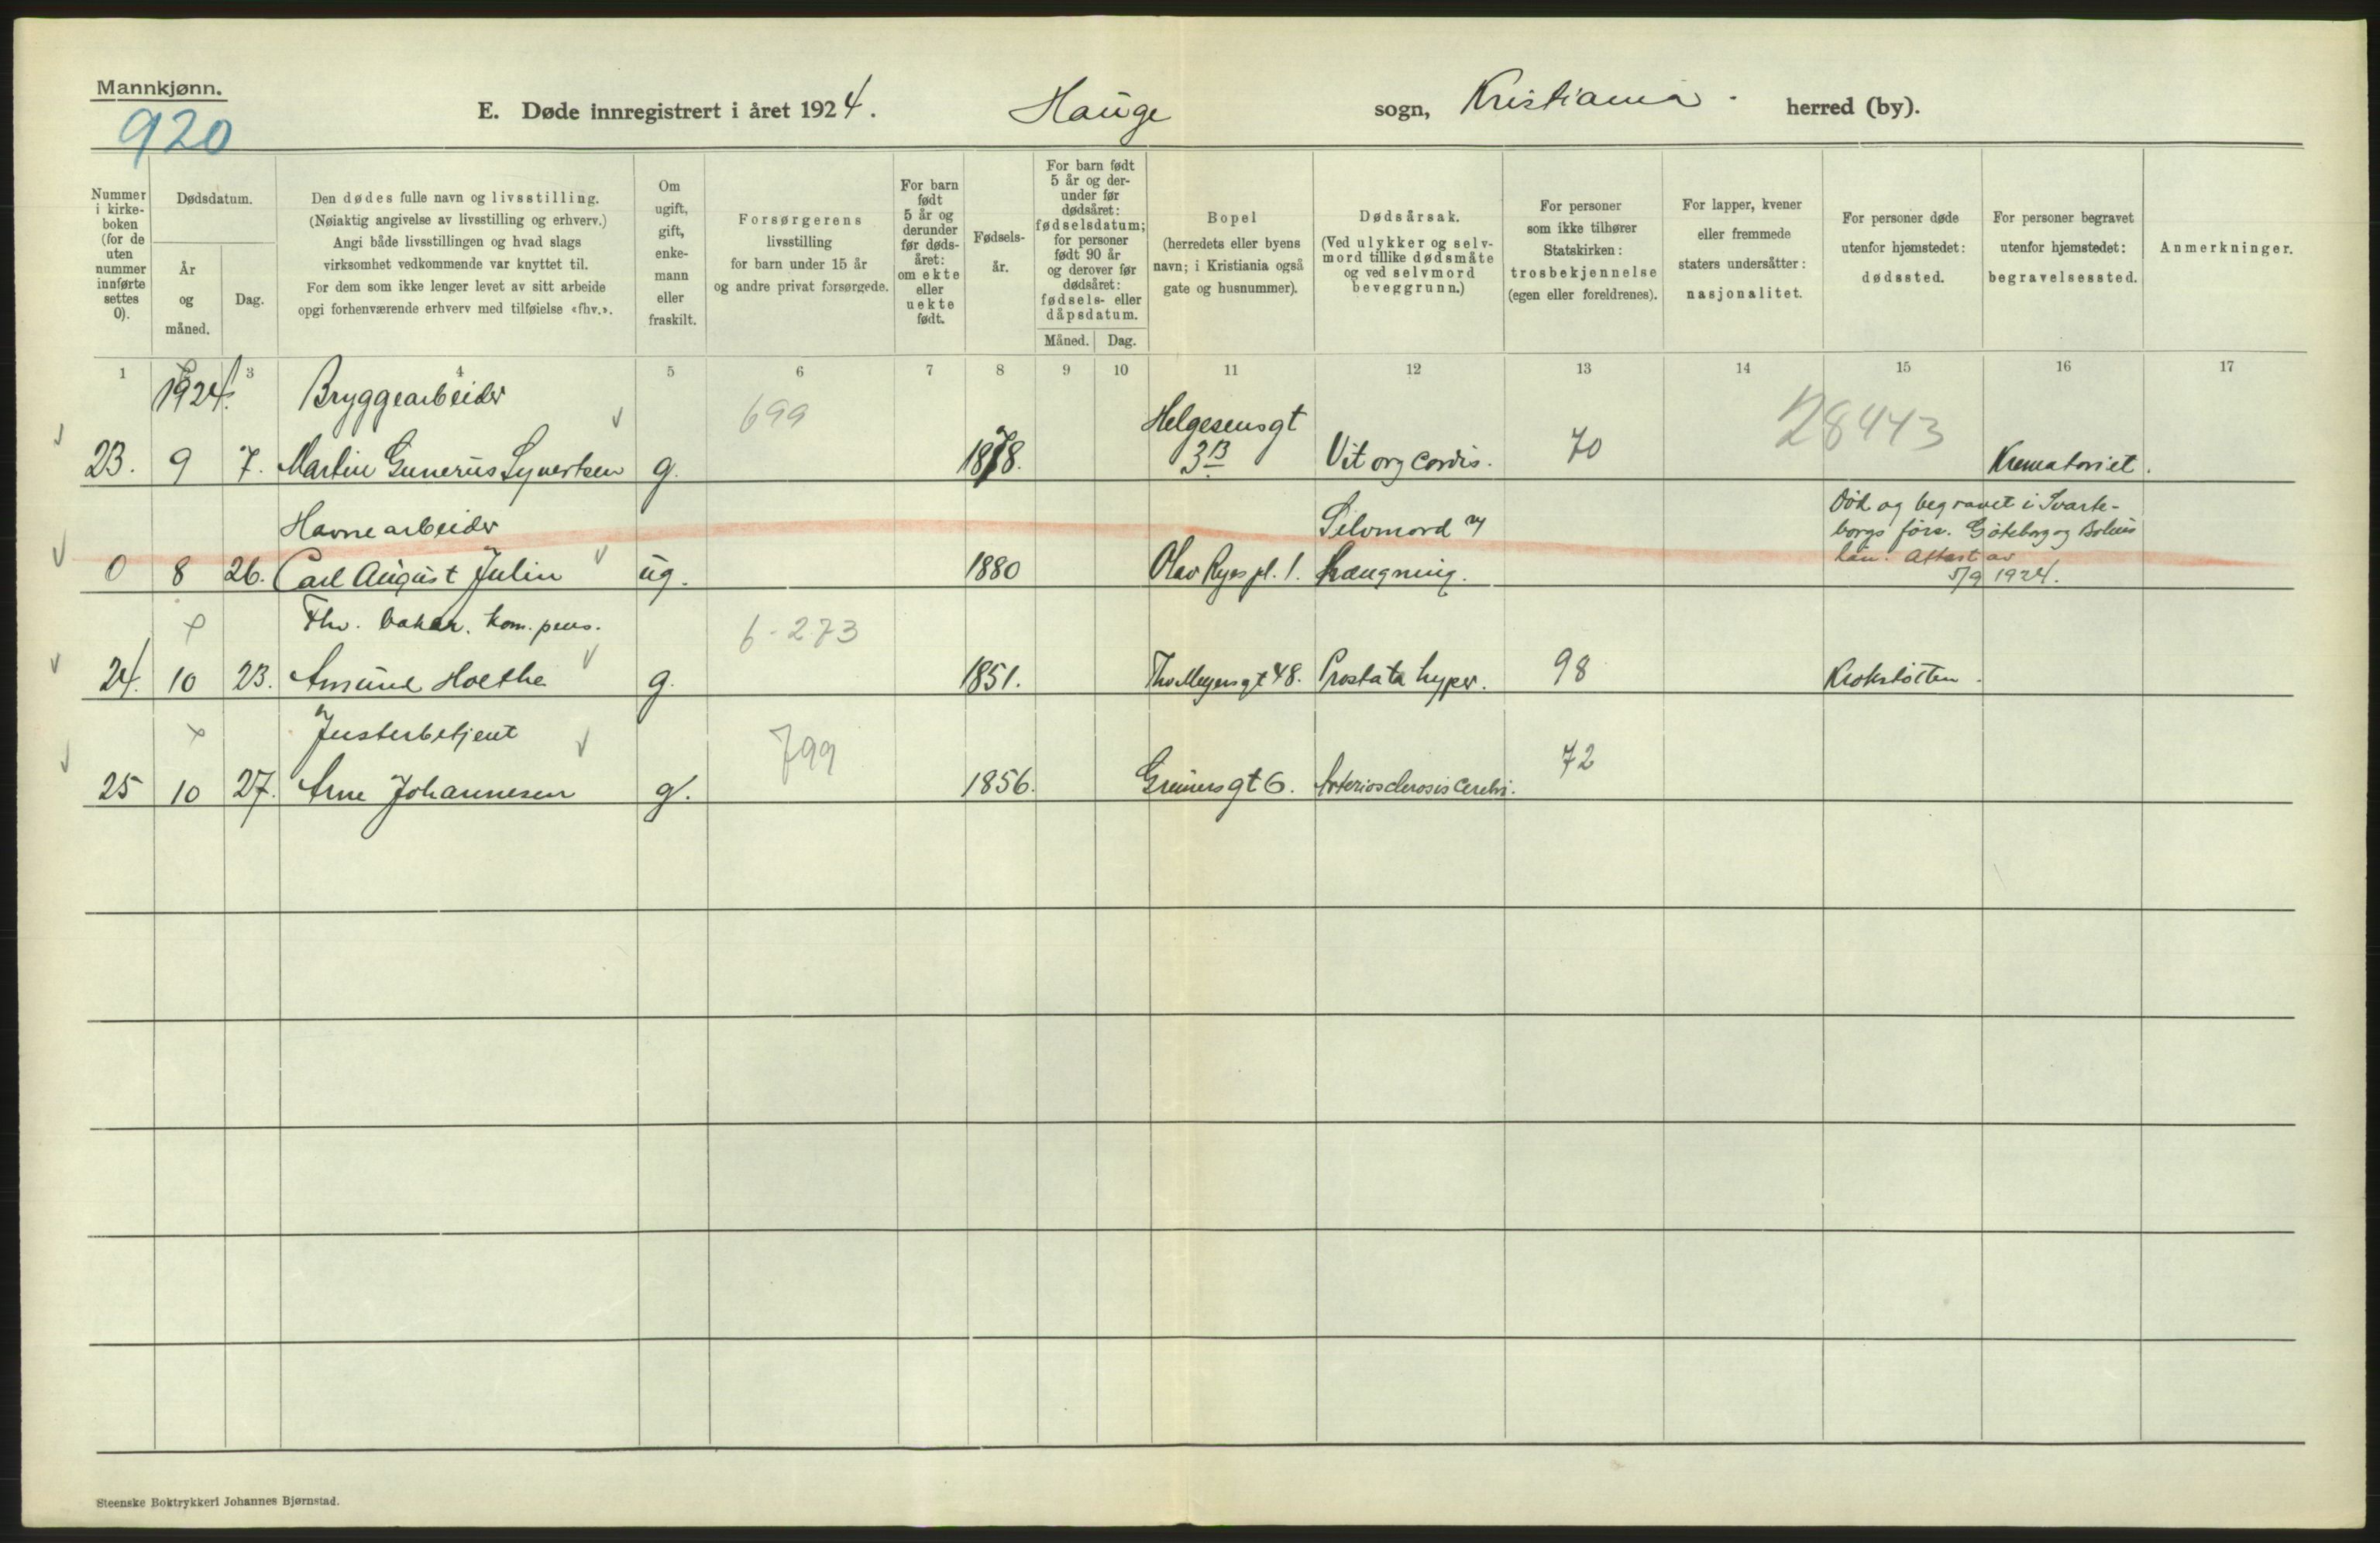 Mannkjønn.
920
E. Døde innregistrert i året 1924. Hauge sogn, Kristiania. herred (by).
Nummer i kirke-boken (for de uten nummer innførte settes 0).
Dødsdatum.
År og måned.
Dag.
Den dødes fulle navn og livsstilling.
(Nøiaktig angivelse av livsstilling og erhverv.)
Angi både livsstillingen og hvad slags
virksomhet vedkommende var knyttet til.
For dem som ikke lenger levet av sitt arbeide
opgi forhenværende erhverv med tilføielse «fhv.».
Om ugift, gift, enke-mann eller fraskilt.
Forsørgerens
livsstilling
for barn under 15 år
og andre privat forsørgede.
For barn født 5 år og derunder før døds-året: om ekte eller uekte født.
Fødsels-år.
For barn født 5 år og der-under før dødsåret: fødselsdatum; for personer født 90 år og derover før dødsåret: fødsels- eller dåpsdatum.
Måned. Dag.
Bopel
(herredets eller byens
navn; i Kristiania også
gate og husnummer).
Dødsårsak.
(Ved ulykker og selv-
mord tillike dødsmåte
og ved selvmord
beveggrunn.)
For personer
som ikke tilhører
Statskirken:
trosbekjennelse
(egen eller foreldrenes).
For lapper, kvener
eller fremmede
staters undersåtter:
nasjonalitet.
For personer døde
utenfor hjemstedet:
dødssted.
For personer begravet
utenfor hjemstedet:
begravelsessted.
Anmerkninger.
1 3 4 5 6 7 8 9 10 11 12 13 14 15 16 17
1924. Bryggearbeider 699 Helgesensgt 28443
23. 9 7. Martin Gunerius Syvertsen g. 1878. 3B Vit org cordis. 70 Krematoriet.
Havnearbeider Selvmord v Död og begravet i Svarte-
borgs förs. Göteborg og Bohus
0 8 26. Carl August Julin ug. 1880 Olav Ryes pl. 1. hængning. län. Attest av
5/9 1924.
Fhv. baker. kom. pens. 6-273
24. 10 23. Amund Holthe g. 1851. Thv Meyersgt 48. Prostata hyper. 98 Krokstötten.
Justerbetjent 799
25 10 27. Arne Johannesen g. 1856. Grünersgt 6. Arteriosclerosis Cerebri. 72
Steenske Boktrykkeri Johannes Bjørnstad.